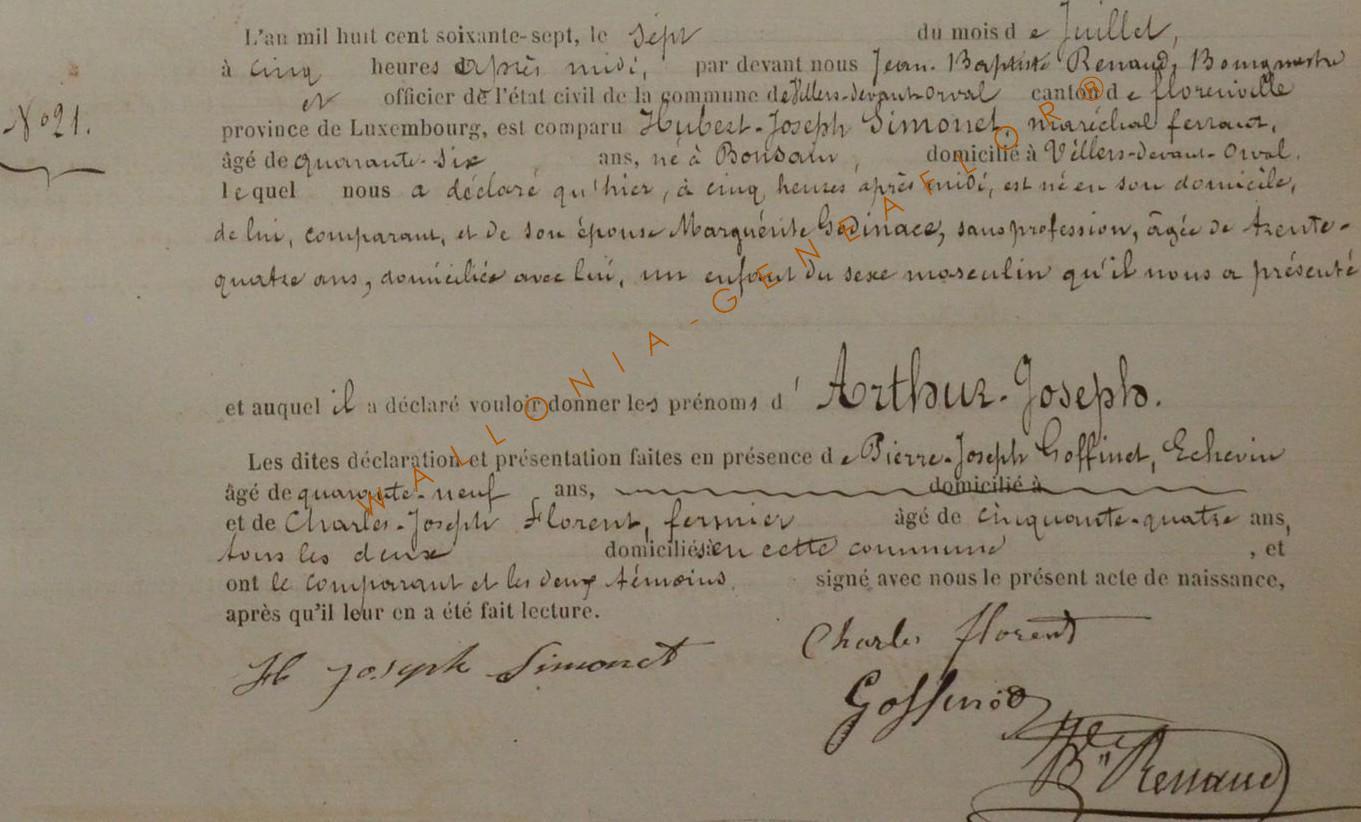 L'an mil huit cent soixante-sept, le sept du mois de Juillet,
à cinq heures après midi, par devant nous Jean-Baptiste Renaud, Bourgmestre
et officier de l'état civil de la commune de Villers-devant-Orval canton de florenville
N° 21.
province de Luxembourg, est comparu Hubert-Joseph Simonet, maréchal ferrant,
âgé de quarante-six ans, né à domicilié à Villers-devant-Orval.
lequel nous a déclaré qu'hier, à cinq heures après midi, est né en son domicile,
de lui, comparant, et de son épouse Marguérite Godinace, sans profession, âgée de trente-
quatre ans, domiciliée avec lui, un enfant du sexe masculin qu'il nous a présenté
et auquel il a déclaré vouloir donner les prénoms d'Arthur-Joseph.
Les dites déclaration et présentation faites en présence de Pierre-Joseph Goffinet, Echevin
âgé de quarante-neuf ans, domicilié à
et de Charles-Joseph Florent, fermier âgé de cinquante-quatre ans,
tous les deux domiciliés en cette commune, et
ont le comparant et les deux témoins signé avec nous le présent acte de naissance,
après qu'il leur en a été fait lecture.
H Joseph Simonet
Charles florent
Goffinet
Bte Renaud
WALLONIA-GENEAFLOR®